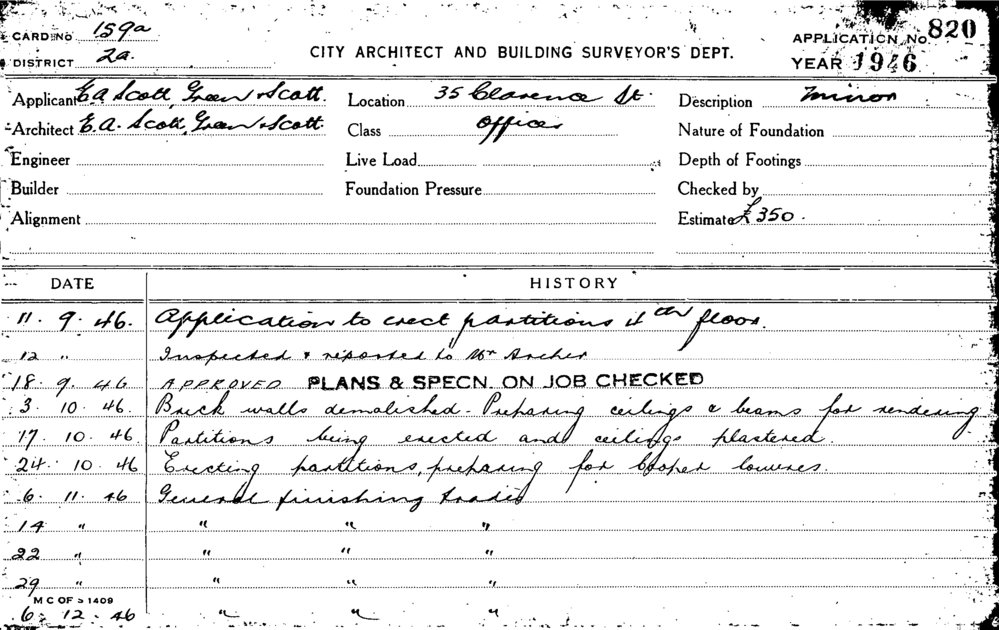 CARD No 159a
DISTRICT 2a.
CITY ARCHITECT AND BUILDING SURVEYOR'S DEPT.
APPLICATION No 820
YEAR 1946
Applicant E.A. Scott, Green & Scott. Location 35 Clarence St. Description Minor
Architect E.A. Scott, Green & Scott. Class Offices Nature of Foundation
Engineer Live Load Depth of Footings
Builder Foundation Pressure Checked by
Alignment Estimate £350.
DATE HISTORY
11. 9. 46. Application to erect partitions 4th floor.
12 " Inspected & reported to Mr Archer
18. 9. 46 APPROVED PLANS & SPECN. ON JOB CHECKED
3. 10. 46. Brick walls demolished. Preparing ceilings & beams for rendering
17. 10. 46 Partitions being erected and ceilings plastered.
24. 10. 46 Erecting partitions, preparing for louvres.
6. 11. 46 General finishing trades
14 " " " "
22 " " " "
29 " " " "
M C OF S 1409
6. 12. 46 " " "